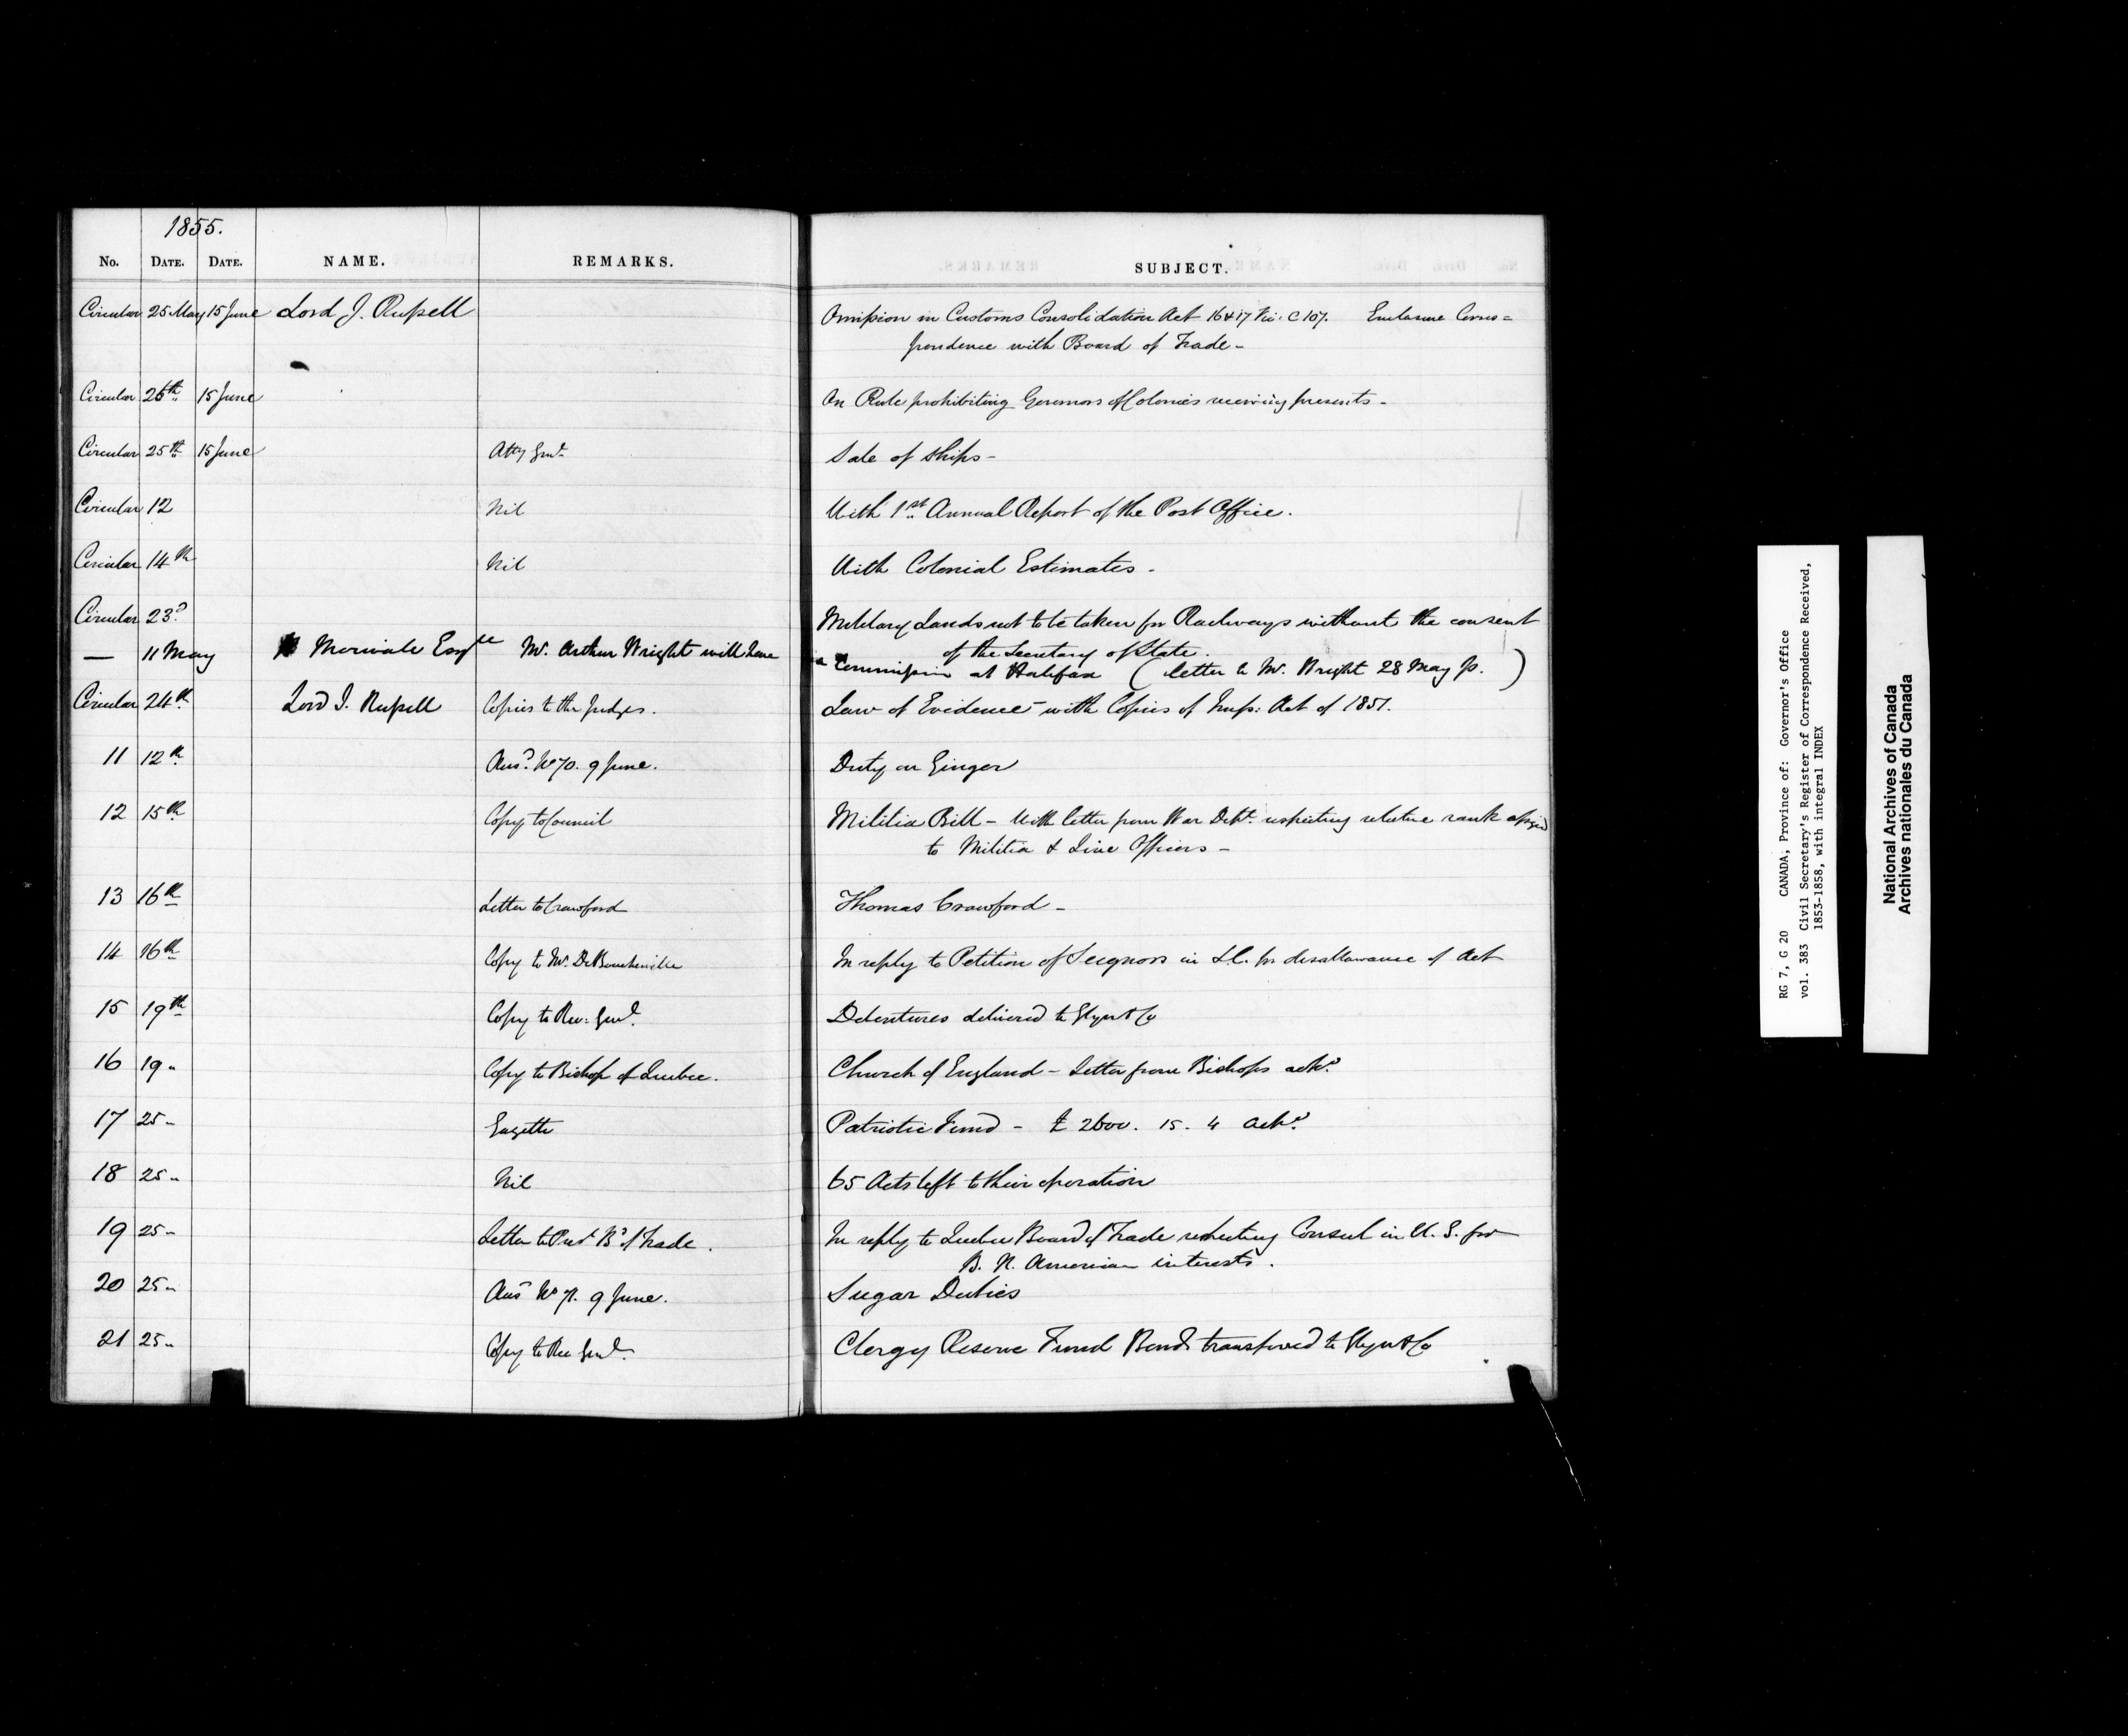 1855.
No. DATE. DATE. NAME. REMARKS. SUBJECT.
Circular 25 May 15 June Lord J. Russell Omission in Customs Consolidation Act 16 & 17 Vic: C 107. Enclosure Corres=
pondence with Board of Trade -
Circular 26th 15 June On Rule prohibiting Governors of Colonies receiving presents -
Circular 25th 15 June Atty Genl. Sale of Ships -
Circular 12 Nil With 1st Annual Report of the Post Office.
Circular 14th Nil With Colonial Estimates -
Circular 23d Military Lands not to be taken for Railways without the consent
of the Secretary of State.
— 11 May Merivale Esqre Mr. Arthur Wright will have a Commission at Halifax (letter to Mr. Wright 28 May )
Circular 24th Lord J. Russell Copies to the Judges. Law of Evidence - with Copies of Imp: Act of 1851.
11 12th Ansd. No 70. 9 June. Duty on Ginger
12 15th Copy to Council Militia Bill - With letter from War Dept. respecting relative rank
to Militia & Line Officers -
13 16th Letter to Crawford Thomas Crawford -
14 16th Copy to Mr. DeBoucherville In reply to Petition of Seignors in L.C. for disallowance of Act
15 19th Copy to Rec: Genl. Debentures delivered to Glyn & Co
16 19 " Copy to Bishop of Quebec. Church of England - Letter from Bishops ackd.
17 25 " Gazette Patriotic Fund - £ 2600. 15. 4 ackd.
18 25 " Nil 65 Acts left to their operation
19 25 " Letter to Prest Bd of Trade. In reply to Quebec Board of Trade respecting Consul in U.S. for
B. N. American interests.
20 25 " Ansd No 71. 9 June. Sugar Duties
21 25 " Copy to Rec Genl. Clergy Reserve Fund Bonds transferred to Glyn & Co
RG 7, G 20 CANADA, Province of: Governor's Office
vol. 383 Civil Secretary's Register of Correspondence Received,
1853-1858, with integral INDEX
National Archives of Canada
Archives nationales du Canada